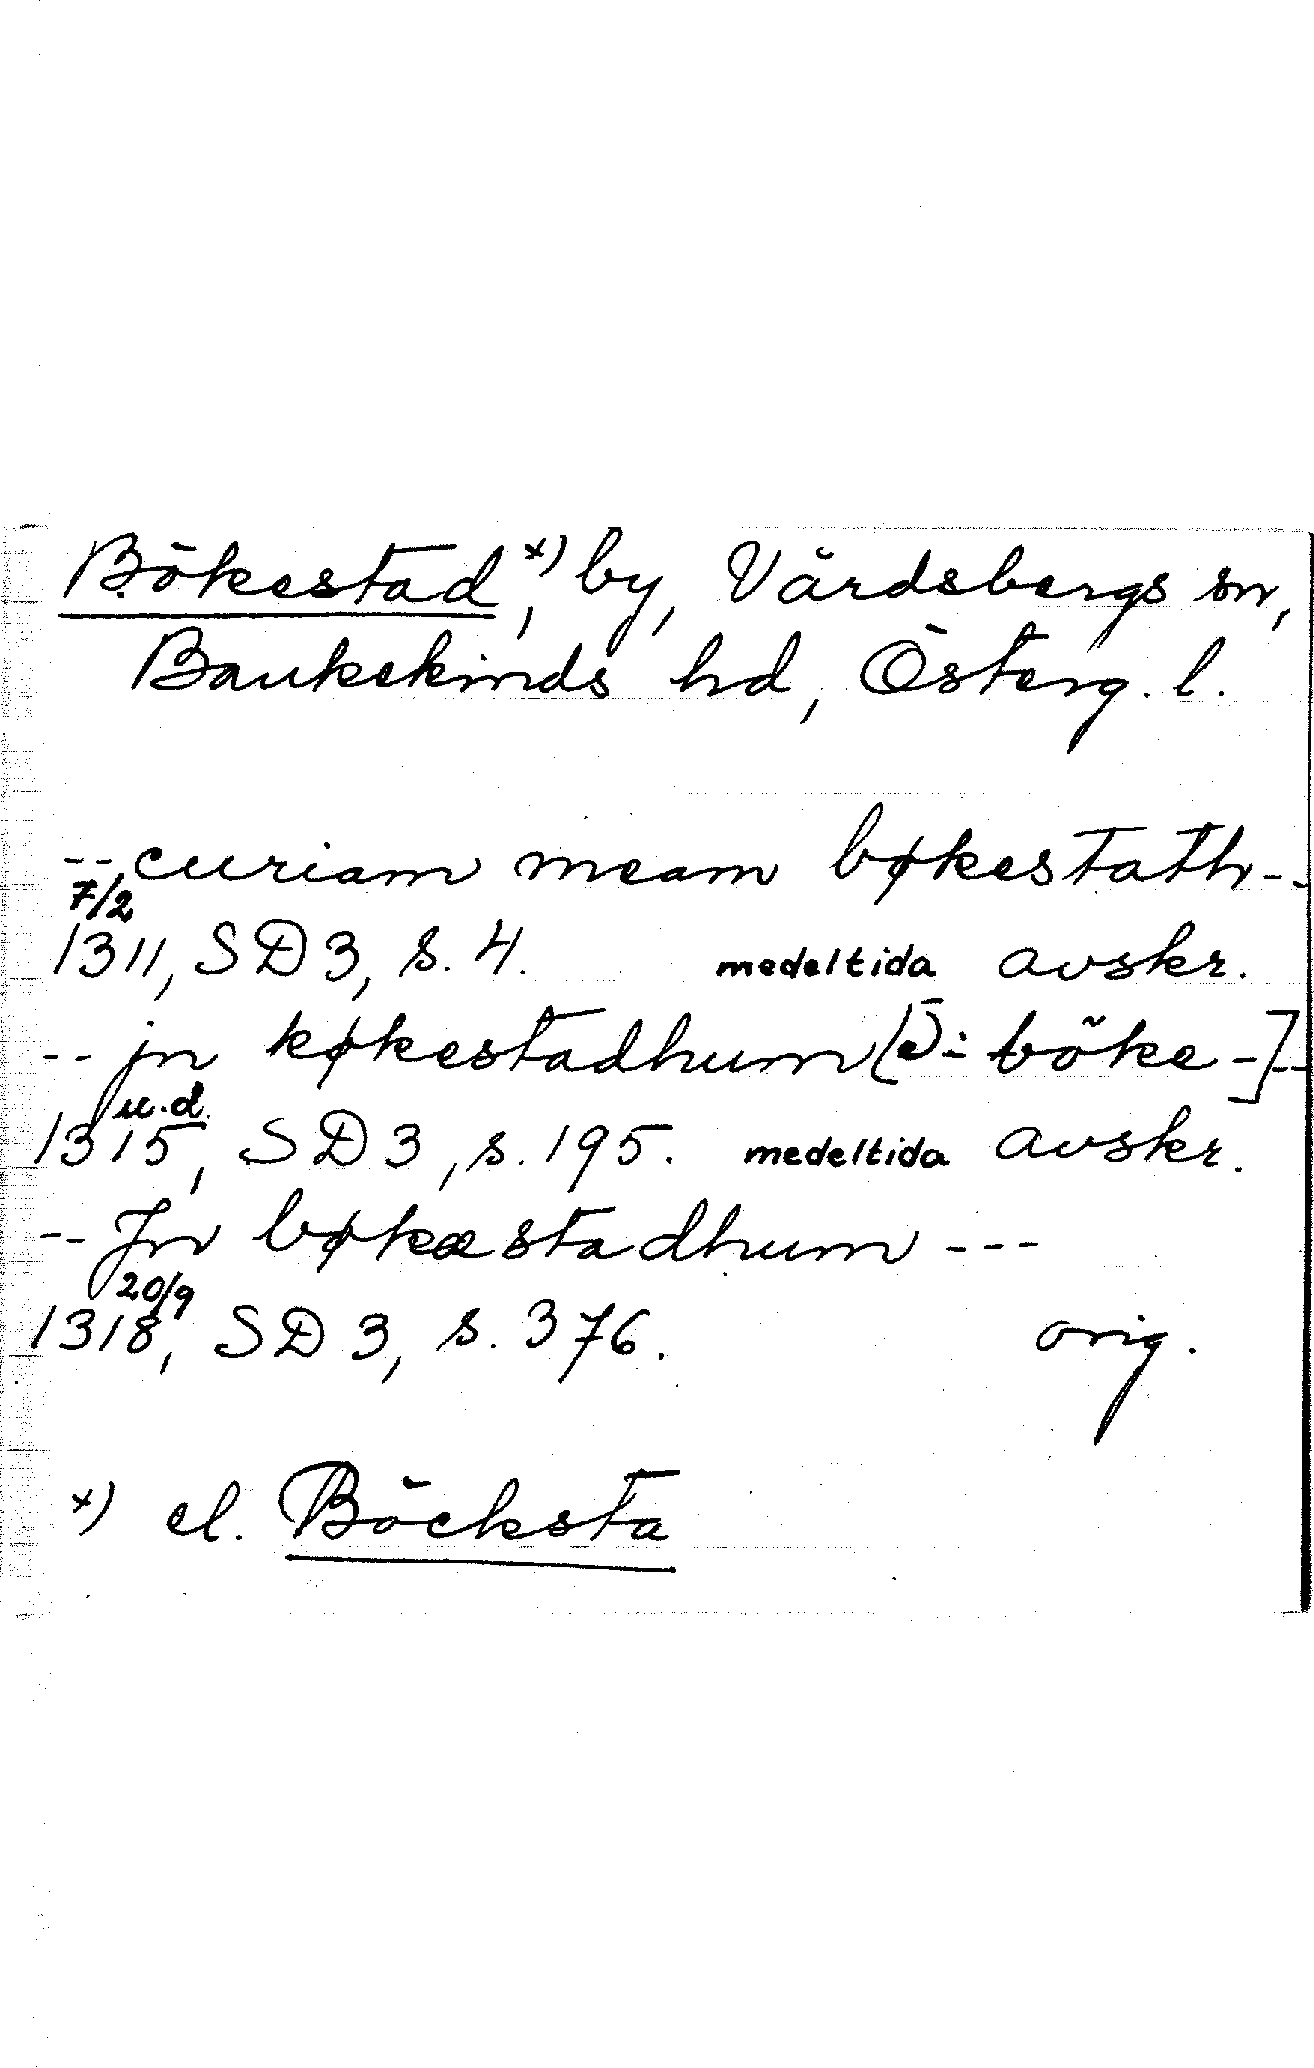 Bökestad,ˣ⁾ by, Vårdsbergs sn,
Bankekinds hd, Österg. l.
-- curiam meam bøkestath --
7/2
1311, SD 3, s. 4. medeltida avskr.
-- jn køkestadhum [ɔ: böke-] --
u.d.
1315, SD 3, s. 195. medeltida avskr.
-- Jn bøkæstadhum ---
20/9
1318, SD 3, s. 376. orig.
x) el. Böcksta